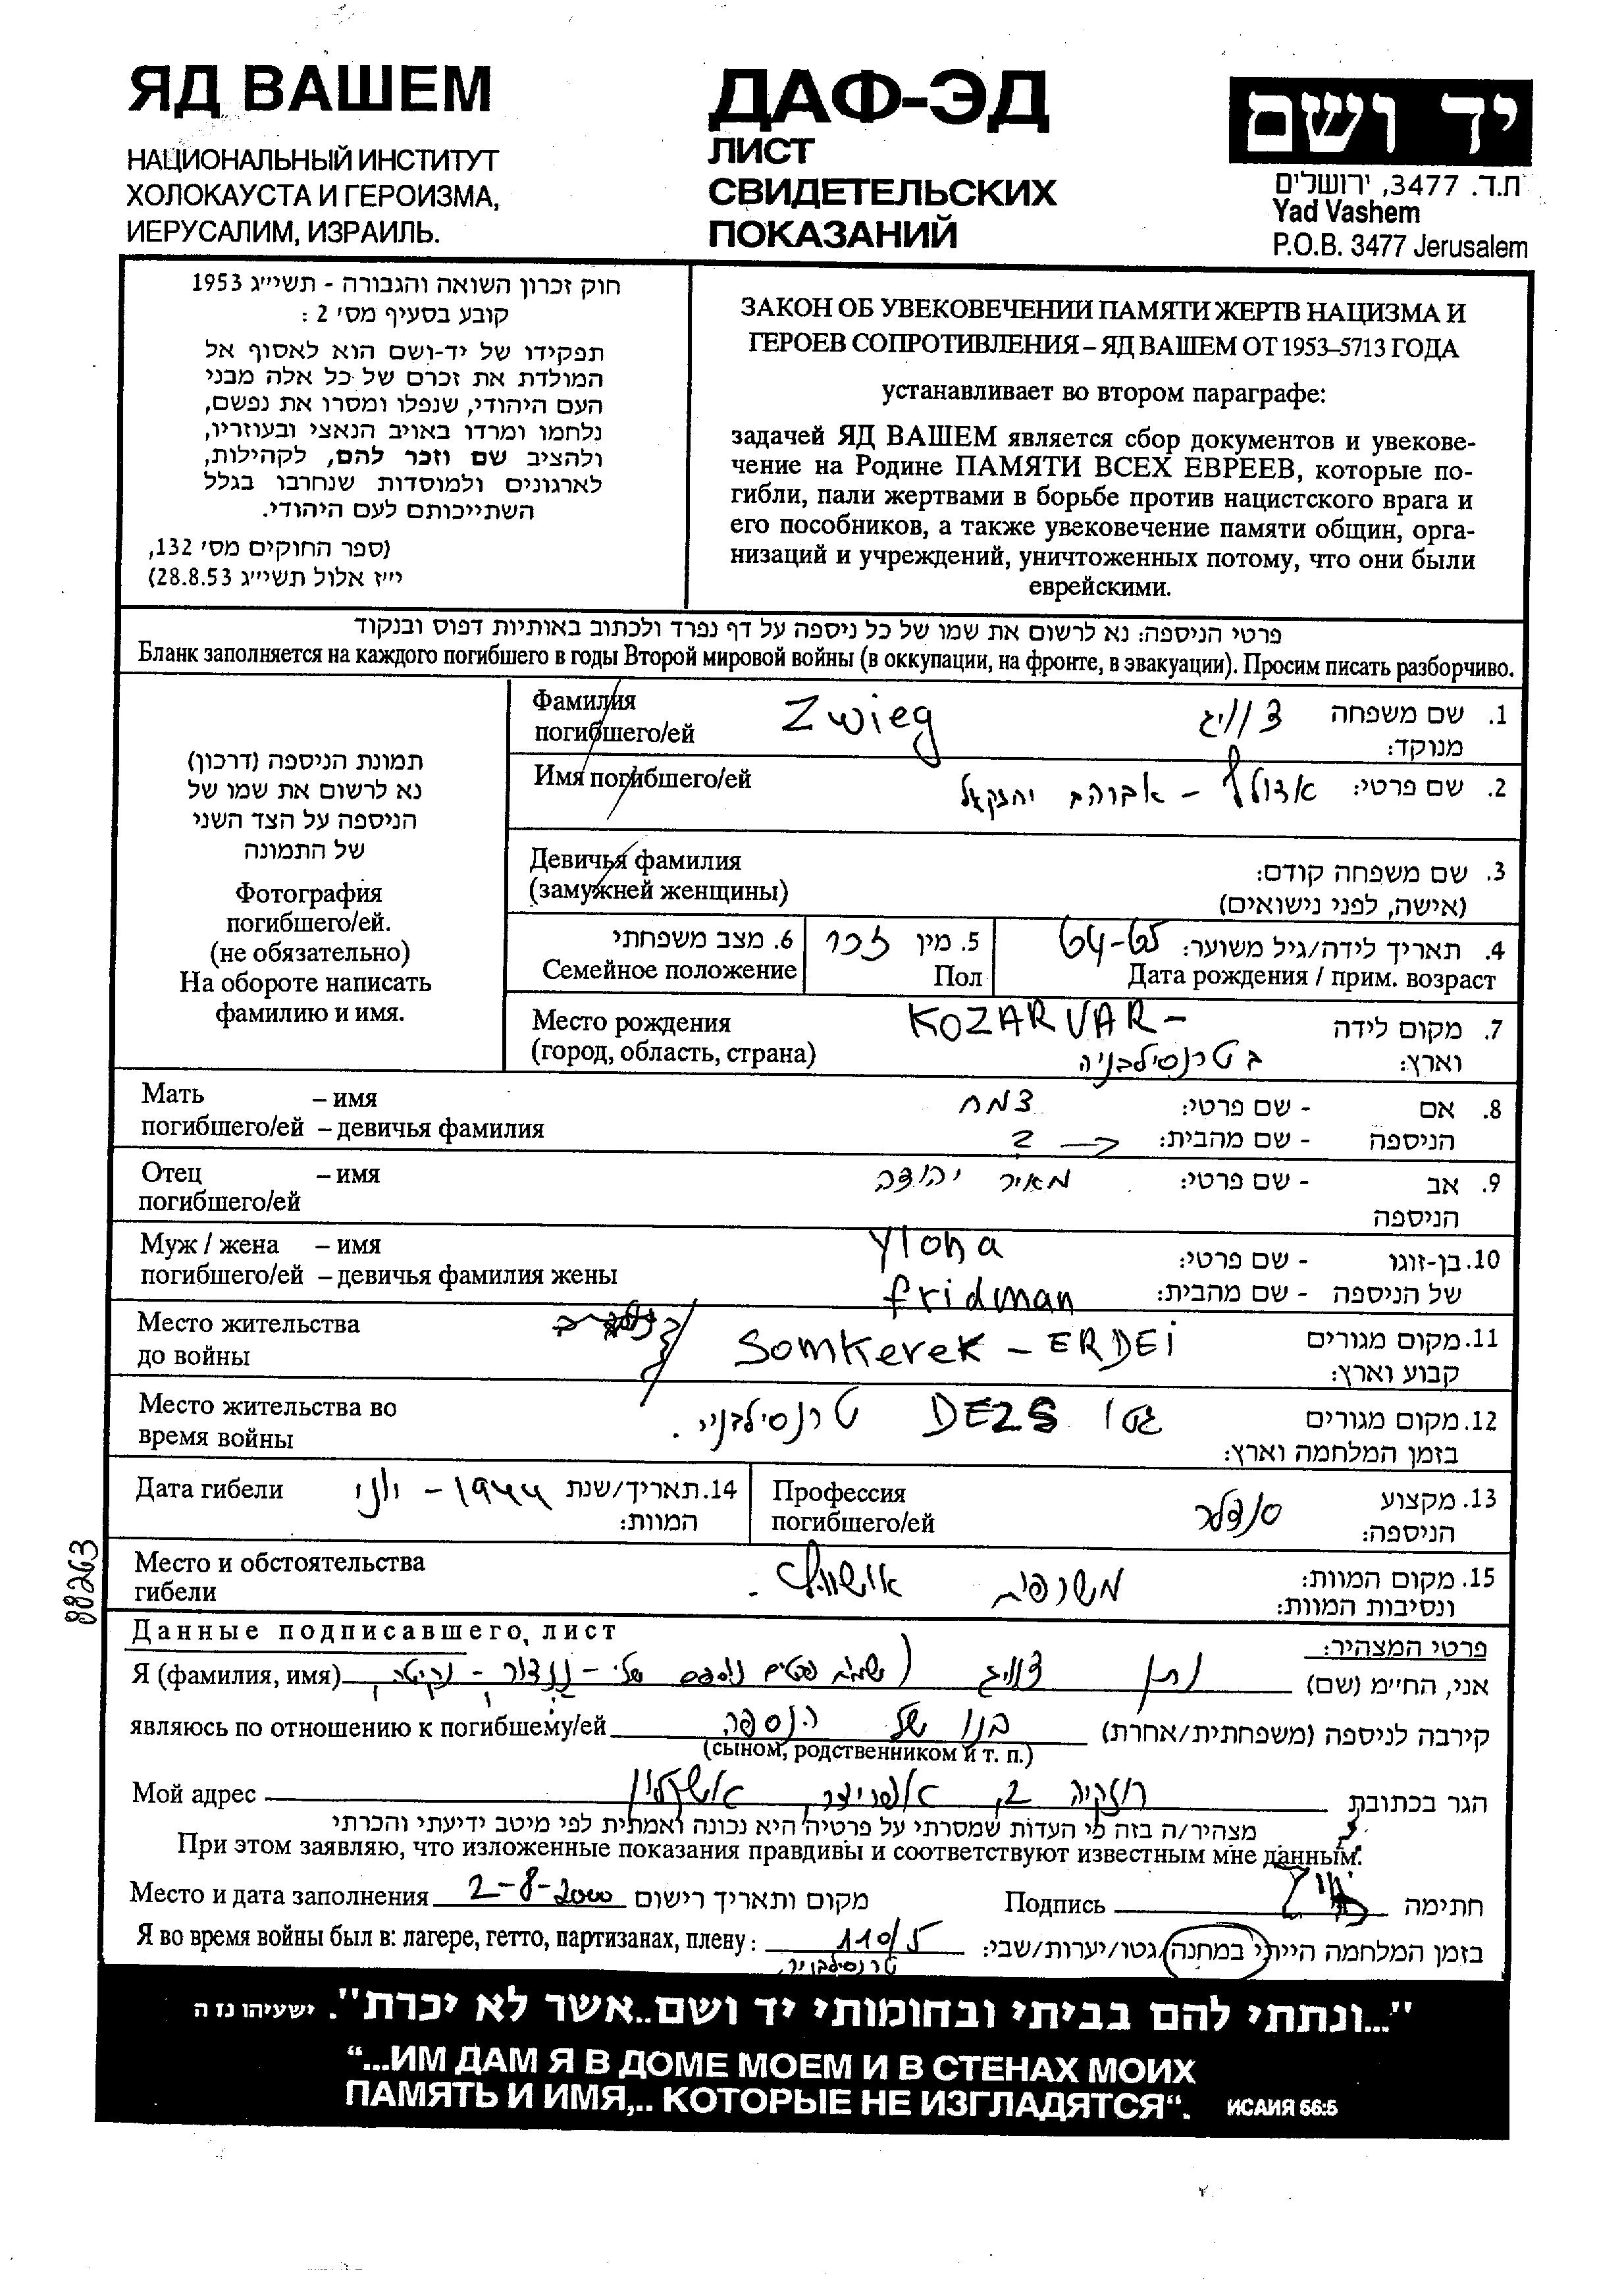 ЯД ВАШЕМ
НАЦИОНАЛЬНЫЙ ИНСТИТУТ
ХОЛОКАУСТА И ГЕРОИЗМА,
ИЕРУСАЛИМ, ИЗРАИЛЬ.
ДАФ-ЭД
ЛИСТ
СВИДЕТЕЛЬСКИХ
ПОКАЗАНИЙ
יד ושם
ת.ד. 3477, ירושלים
Yad Vashem
P.O.B. 3477 Jerusalem
חוק זכרון השואה והגבורה - תשי״ג 1953
קובע בסעיף מס׳ 2 :
תפקידו של יד-ושם הוא לאסוף אל
המולדת את זכרם של כל אלה מבני
העם היהודי, שנפלו ומסרו את נפשם,
נלחמו ומרדו באויב הנאצי ובעוזריו,
ולהציב שם וזכר להם, לקהילות,
לארגונים ולמוסדות שנחרבו בגלל
השתייכותם לעם היהודי.
(ספר החוקים מס׳ 132,
י״ז אלול תשי״ג 28.8.53)
ЗАКОН ОБ УВЕКОВЕЧЕНИИ ПАМЯТИ ЖЕРТВ НАЦИЗМА И
ГЕРОЕВ СОПРОТИВЛЕНИЯ – ЯД ВАШЕМ ОТ 1953–5713 ГОДА
устанавливает во втором параграфе:
задачей ЯД ВАШЕМ является сбор документов и увекове-
чение на Родине ПАМЯТИ ВСЕХ ЕВРЕЕВ, которые по-
гибли, пали жертвами в борьбе против нацистского врага и
его пособников, а также увековечение памяти общин, орга-
низаций и учреждений, уничтоженных потому, что они были
еврейскими.
פרטי הניספה: נא לרשום את שמו של כל ניספה על דף נפרד ולכתוב באותיות דפוס ובנקוד
Бланк заполняется на каждого погибшего в годы Второй мировой войны (в оккупации, на фронте, в эвакуации). Просим писать разборчиво.
תמונת הניספה (דרכון)
נא לרשום את שמו של
הניספה על הצד השני
של התמונה
Фотография
погибшего/ей.
(не обязательно)
На обороте написать
фамилию и имя.
Фамилия Zwieg צווייג 1. שם משפחה
погибшего/ей מנוקד:
Имя погибшего/ей אדולף - אברהם יחזקאל 2. שם פרטי:
Девичья фамилия 3. שם משפחה קודם:
(замужней женщины) (אישה, לפני נישואים)
6. מצב משפחתי 5. מין זכר 4. תאריך לידה/גיל משוער: 64-65
Семейное положение Пол Дата рождения / прим. возраст
Место рождения KOZARVAR- 7. מקום לידה
(город, область, страна) בטרנסילבניה וארץ:
Мать – имя צמח 8. אם - שם פרטי:
погибшего/ей – девичья фамилия ? הניספה - שם מהבית:
Отец – имя מאיר יהודה 9. אב - שם פרטי:
погибшего/ей הניספה
Муж / жена – имя Ylona 10. בן-זוגו - שם פרטי:
погибшего/ей – девичья фамилия жены fridman של הניספה - שם מהבית:
Место жительства Somkerek - ERDEi 11. מקום מגורים
до войны קבוע וארץ:
Место жительства во גטו DEZS טרנסילבניי. 12. מקום מגורים
время войны בזמן המלחמה וארץ:
Дата гибели 1944 - יוני 14. תאריך/שנת Профессия סנדלר 13. מקצוע
המוות: погибшего/ей הניספה:
Место и обстоятельства משרפות אושוויץ. 15. מקום המוות:
гибели ונסיבות המוות:
88263
Данные подписавшего, лист פרטי המצהיר:
Я (фамилия, имя) נתן צווייג אני, החיימ (שם)
являюсь по отношению к погибшему/ей בנו של הנספה קירבה לניספה (משפחתית/אחרת)
(сыном, родственником и т. п.)
Мой адрес חזקיה 2, אשקלון הגר בכתובת
מצהיר/ה בזה כי העדות שמסרתי על פרטיה היא נכונה ואמתית לפי מיטב ידיעתי והכרתי
При этом заявляю, что изложенные показания правдивы и соответствуют известным мне данным.
Место и дата заполнения 2-8-2000 מקום ותאריך רישום Подпись חתימה
Я во время войны был в: лагере, гетто, партизанах, плену: 110/5 בזמן המלחמה הייתי במחנה/גטו/יערות/שבי:
טרנסילבניה
"...ונתתי להם בביתי ובחומותי יד ושם..אשר לא יכרת". ישעיהו נז ה
“...ИМ ДАМ Я В ДОМЕ МОЕМ И В СТЕНАХ МОИХ
ПАМЯТЬ И ИМЯ,.. КОТОРЫЕ НЕ ИЗГЛАДЯТСЯ“. ИСАИЯ 56:5